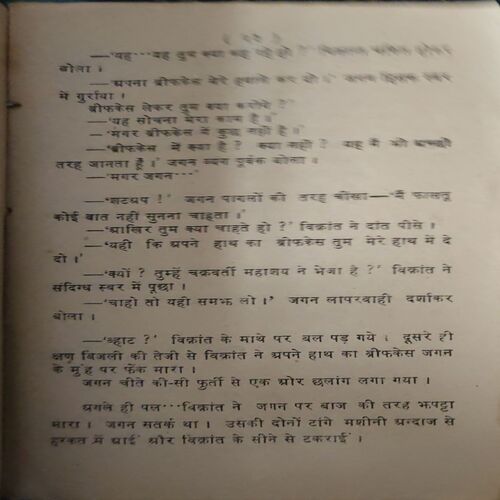 —'यह···यह तुम क्या कह रहे हो ?'
बोला ।
—'अपना ब्रीफकेस मेरे हवाले कर दो ।' जगन
में गुर्राया ।
ब्रीफकेस लेकर तुम क्या करोगे ?'
—'यह सोचना मेरा काम है ।'
—'मगर ब्रीफकेस में कुछ नहीं है ।'
—'ब्रीफकेस में क्या है ? क्या नहीं ? यह मैं भी अच्छी
तरह जानता हूँ ।' जगन व्यंग पूर्वक बोला ।
—'मगर जगन···'
—'शटअप !' जगन पागलों की तरह चीखा—'मैं फालतू
कोई बात नहीं सुनना चाहता ।'
—'आखिर तुम क्या चाहते हो ?' विक्रांत ने दांत पीसे ।
—'यही कि अपने हाथ का ब्रीफकेस तुम मेरे हाथ में दे
दो ।'
—'क्यों ? तुम्हें चक्रवर्ती महाशय ने भेजा है ?' विक्रांत ने
संदिग्ध स्वर में पूछा ।
—'चाहो तो यही समझ लो ।' जगन लापरवाही दर्शाकर
बोला ।
—'व्हाट ?' विक्रांत के माथे पर बल पड़ गये । दूसरे ही
क्षण बिजली की तेजी से विक्रांत ने अपने हाथ का ब्रीफकेस जगन
के मुंह पर फेंक मारा ।
जगन चीते की-सी फुर्ती से एक ओर छलांग लगा गया ।
अगले ही पल···विक्रांत ने जगन पर बाज की तरह झपट्टा
मारा । जगन सतर्क था । उसकी दोनों टांगे मशीनी अन्दाज से
हरकत में आईं और विक्रांत के सीने से टकराईं ।